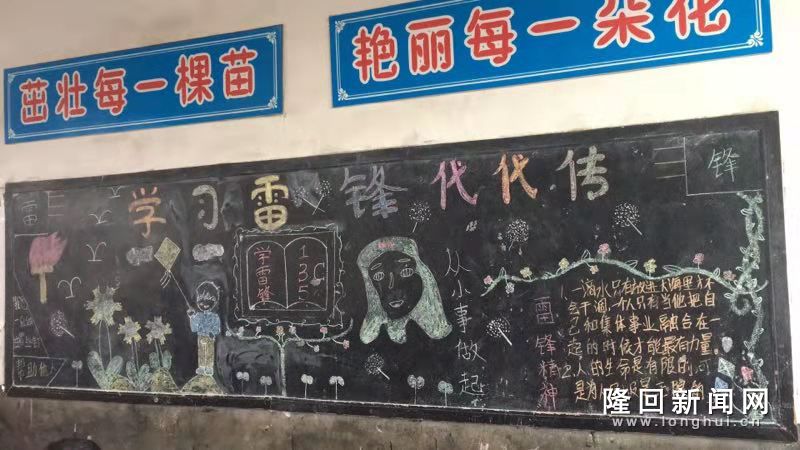 茁壮每一棵苗
艳丽每一朵花
雷
学习雷锋代代传
锋
学雷锋
1
3
5
从小事做起
雷锋精神
1、一滴水只有放进大海里才不
会干涸,一个人只有当他把自
己和集体事业融合在一
起的时候才能最有力量。
2、人的生命是有限的,可
是为
助他
隆回新闻网
www.longhui.cn